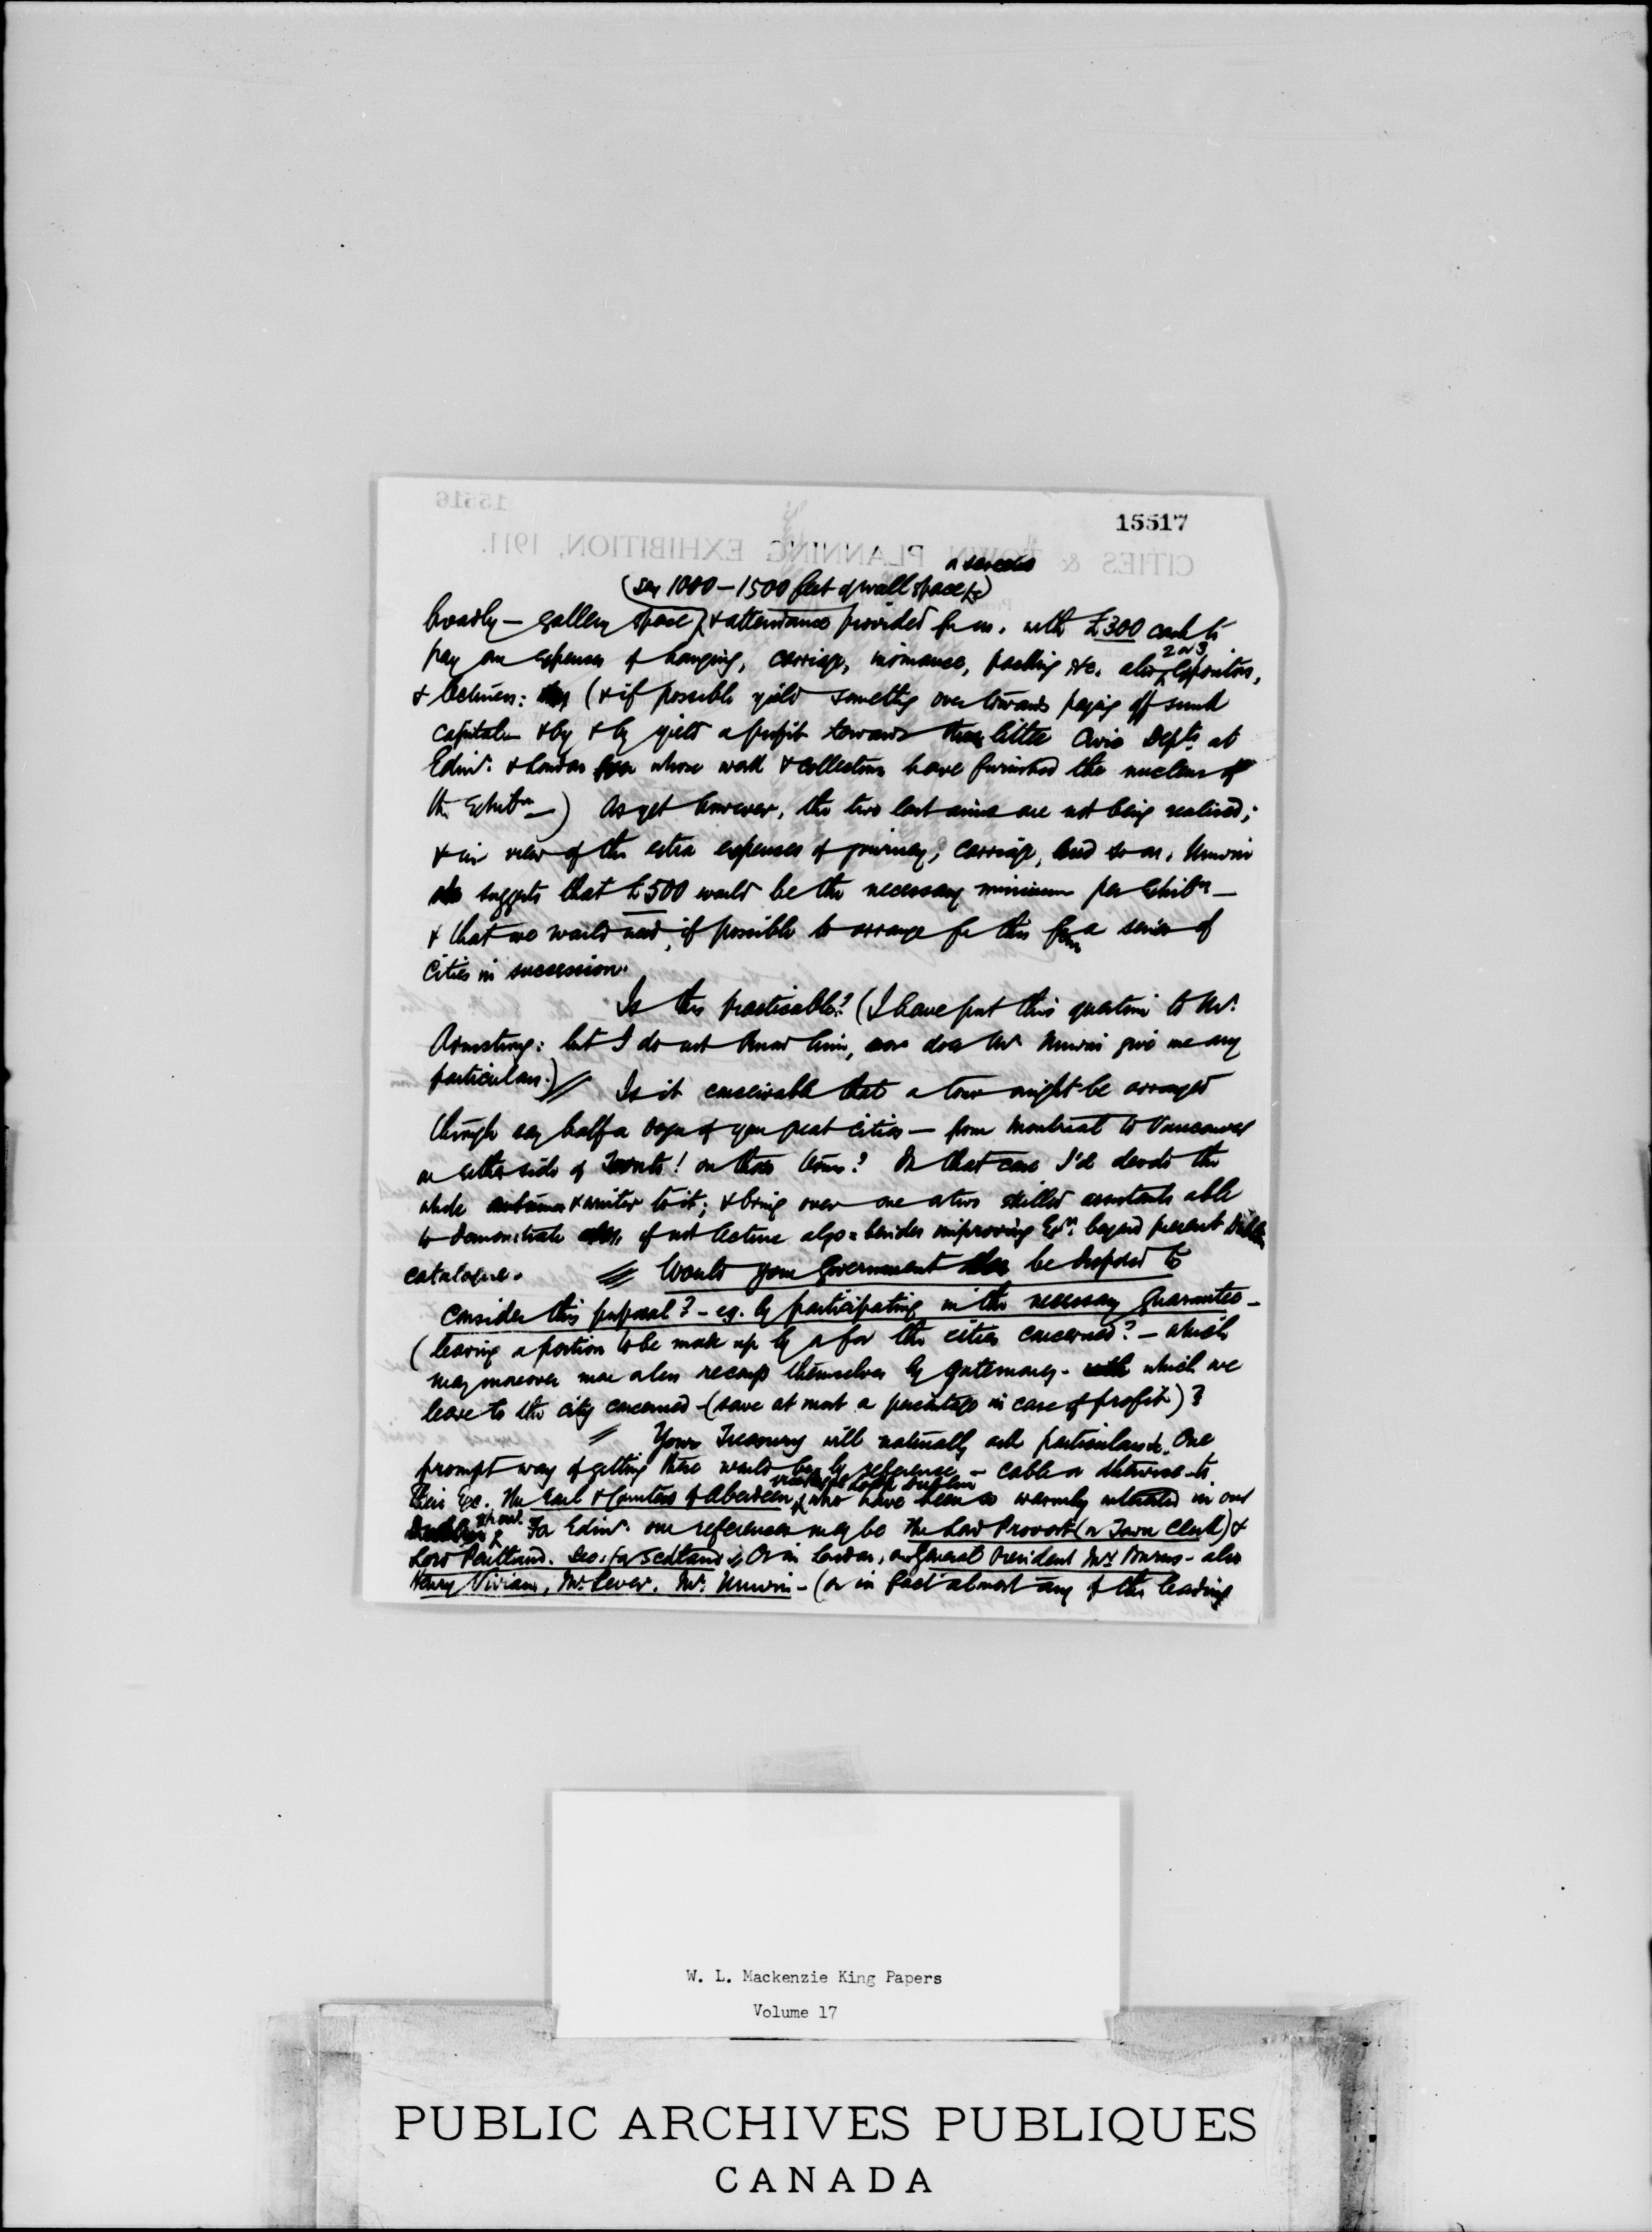 15517
CITIES & TOWN PLANNING EXHIBITION, 1911.
or screens
(say 1000-1500 feet of wall space &c)
broadly — gallery space, & attendance provided for us, with £300 cash to
pay our expenses of hanging, carriage, insurance, packing etc. also 2 or 3 expositors,
& lecturers: (& if possible yield something over towards paying off sunk
capital & by & by yield a profit towards these little Civic Depts. at
Edinr. & London whose work & collections have furnished the nucleus of
the Exhibn —) As yet however, the two last aims are not being realised;
& in view of the extra expenses of journey, carriage, and so on, Unwin
suggests that £500 would be the necessary minimum per Exhibn —
& that we would need, if possible to arrange for this from a series of
Cities in succession.
Is this practicable? (I have put this question to Mr.
Armstrong: but I do not know him, nor does Mr Unwin give me any
particulars.) // Is it conceivable that a tour might be arranged
through say half a dozen of your great cities — from Montreal to Vancouver
on either side of Toronto! on those terms? In that case I'd devote the
whole autumn & winter to it; & bring over one or two skilled assistants able
to demonstrate if not lecture also = besides improving Exn. beyond present Dublin
catalogue. // Would your Government be disposed to
consider this proposal? — eg. by participating in the necessary guarantee —
(leaving a portion to be made up by or for the cities concerned? — which
may moreover more or less recoup themselves by gatemoney — which we
leave to the city concerned — (save at most a percentage in case of profit)?
// Your Treasury will naturally ask particulars &c. One
prompt way of getting these would be by reference — cable or otherwise — to
Their Exc. the Earl & Countess of Aberdeen, Viceregal Lodge Dublin who have been so warmly interested in our
For Edinr. our references may be the Lord Provost (or Town Clerk) &
Lord Pentland. Sec: for Scotland; Or in London, our General President Mr Burns — also
Henry Vivian, Mr Lever, Mr. Unwin — (or in fact almost any of the leading
W. L. Mackenzie King Papers
Volume 17
PUBLIC ARCHIVES PUBLIQUES
CANADA